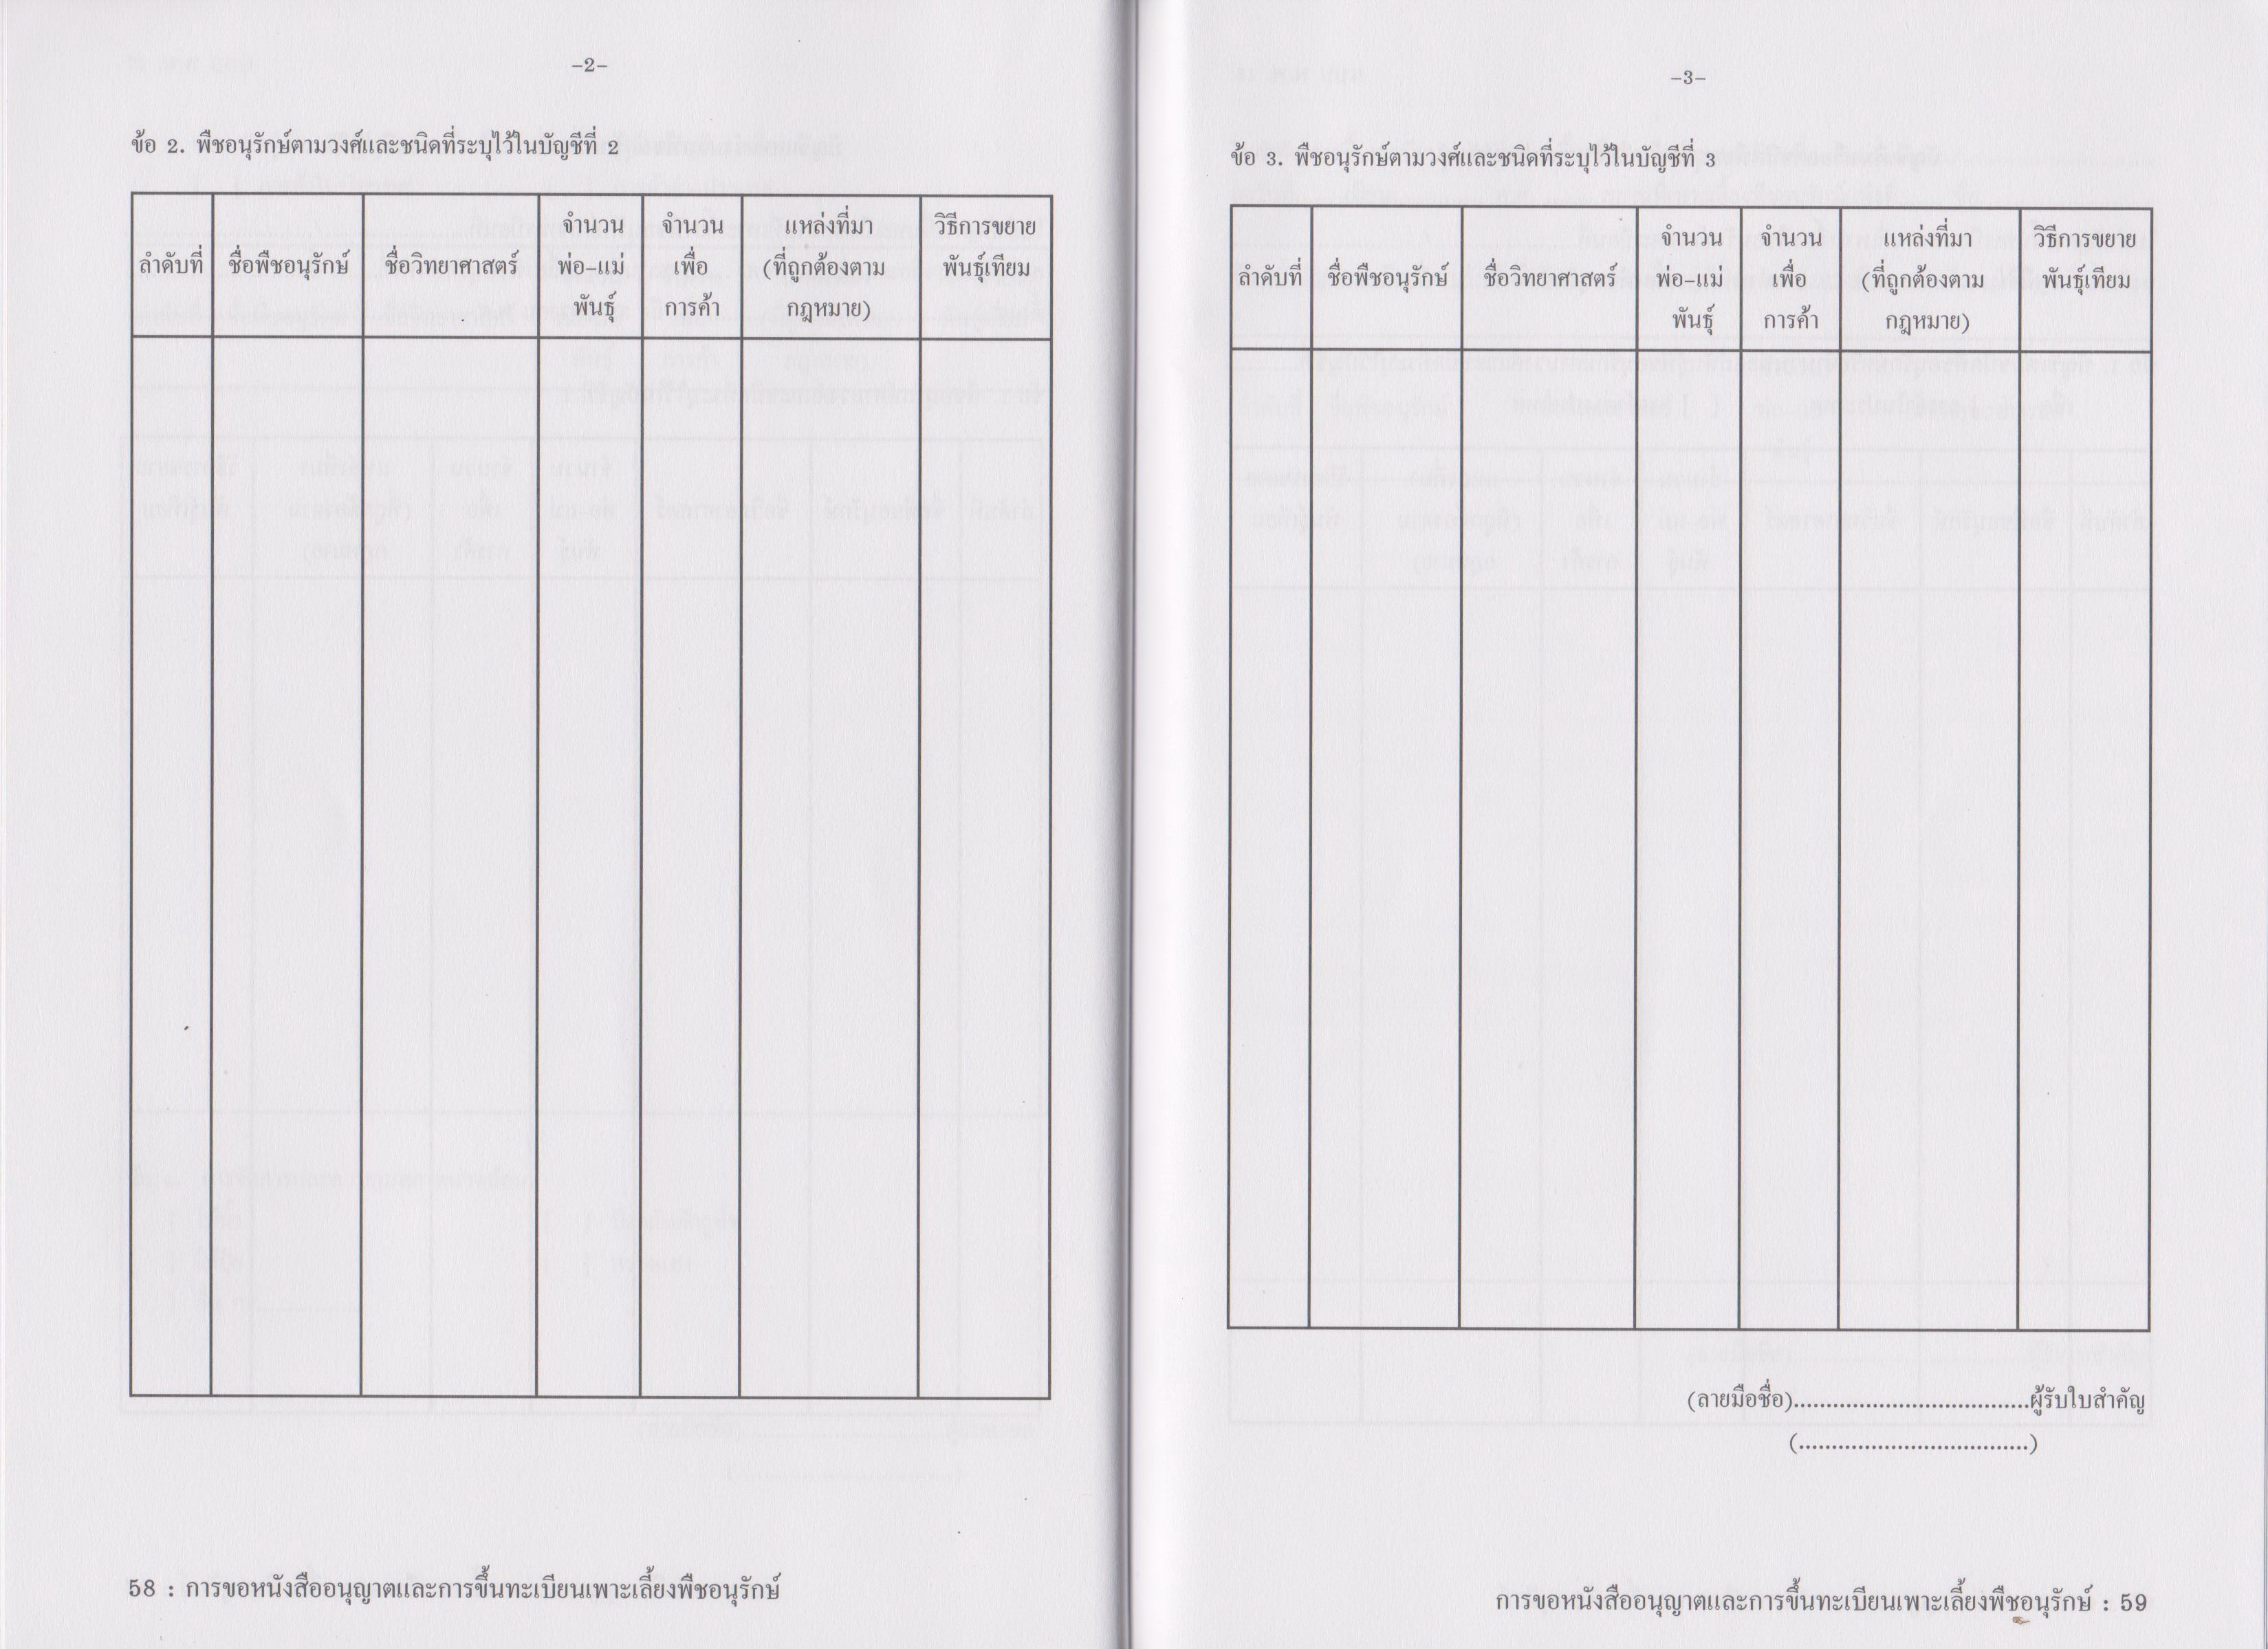 -2-
ข้อ 2. พืชอนุรักษ์ตามวงศ์และชนิดที่ระบุไว้ในบัญชีที่ 2
ลำดับที่ ชื่อพืชอนุรักษ์ ชื่อวิทยาศาสตร์ จำนวน พ่อ-แม่ พันธุ์ จำนวน เพื่อ การค้า แหล่งที่มา (ที่ถูกต้องตาม กฎหมาย) วิธีการขยาย พันธุ์เทียม
58 : การขอหนังสืออนุญาตและการขึ้นทะเบียนเพาะเลี้ยงพืชอนุรักษ์
-3-
ข้อ 3. พืชอนุรักษ์ตามวงศ์และชนิดที่ระบุไว้ในบัญชีที่ 3
ลำดับที่ ชื่อพืชอนุรักษ์ ชื่อวิทยาศาสตร์ จำนวน พ่อ-แม่ พันธุ์ จำนวน เพื่อ การค้า แหล่งที่มา (ที่ถูกต้องตาม กฎหมาย) วิธีการขยาย พันธุ์เทียม
(ลายมือชื่อ)....................................ผู้รับใบสำคัญ
(...................................)
การขอหนังสืออนุญาตและการขึ้นทะเบียนเพาะเลี้ยงพืชอนุรักษ์ : 59